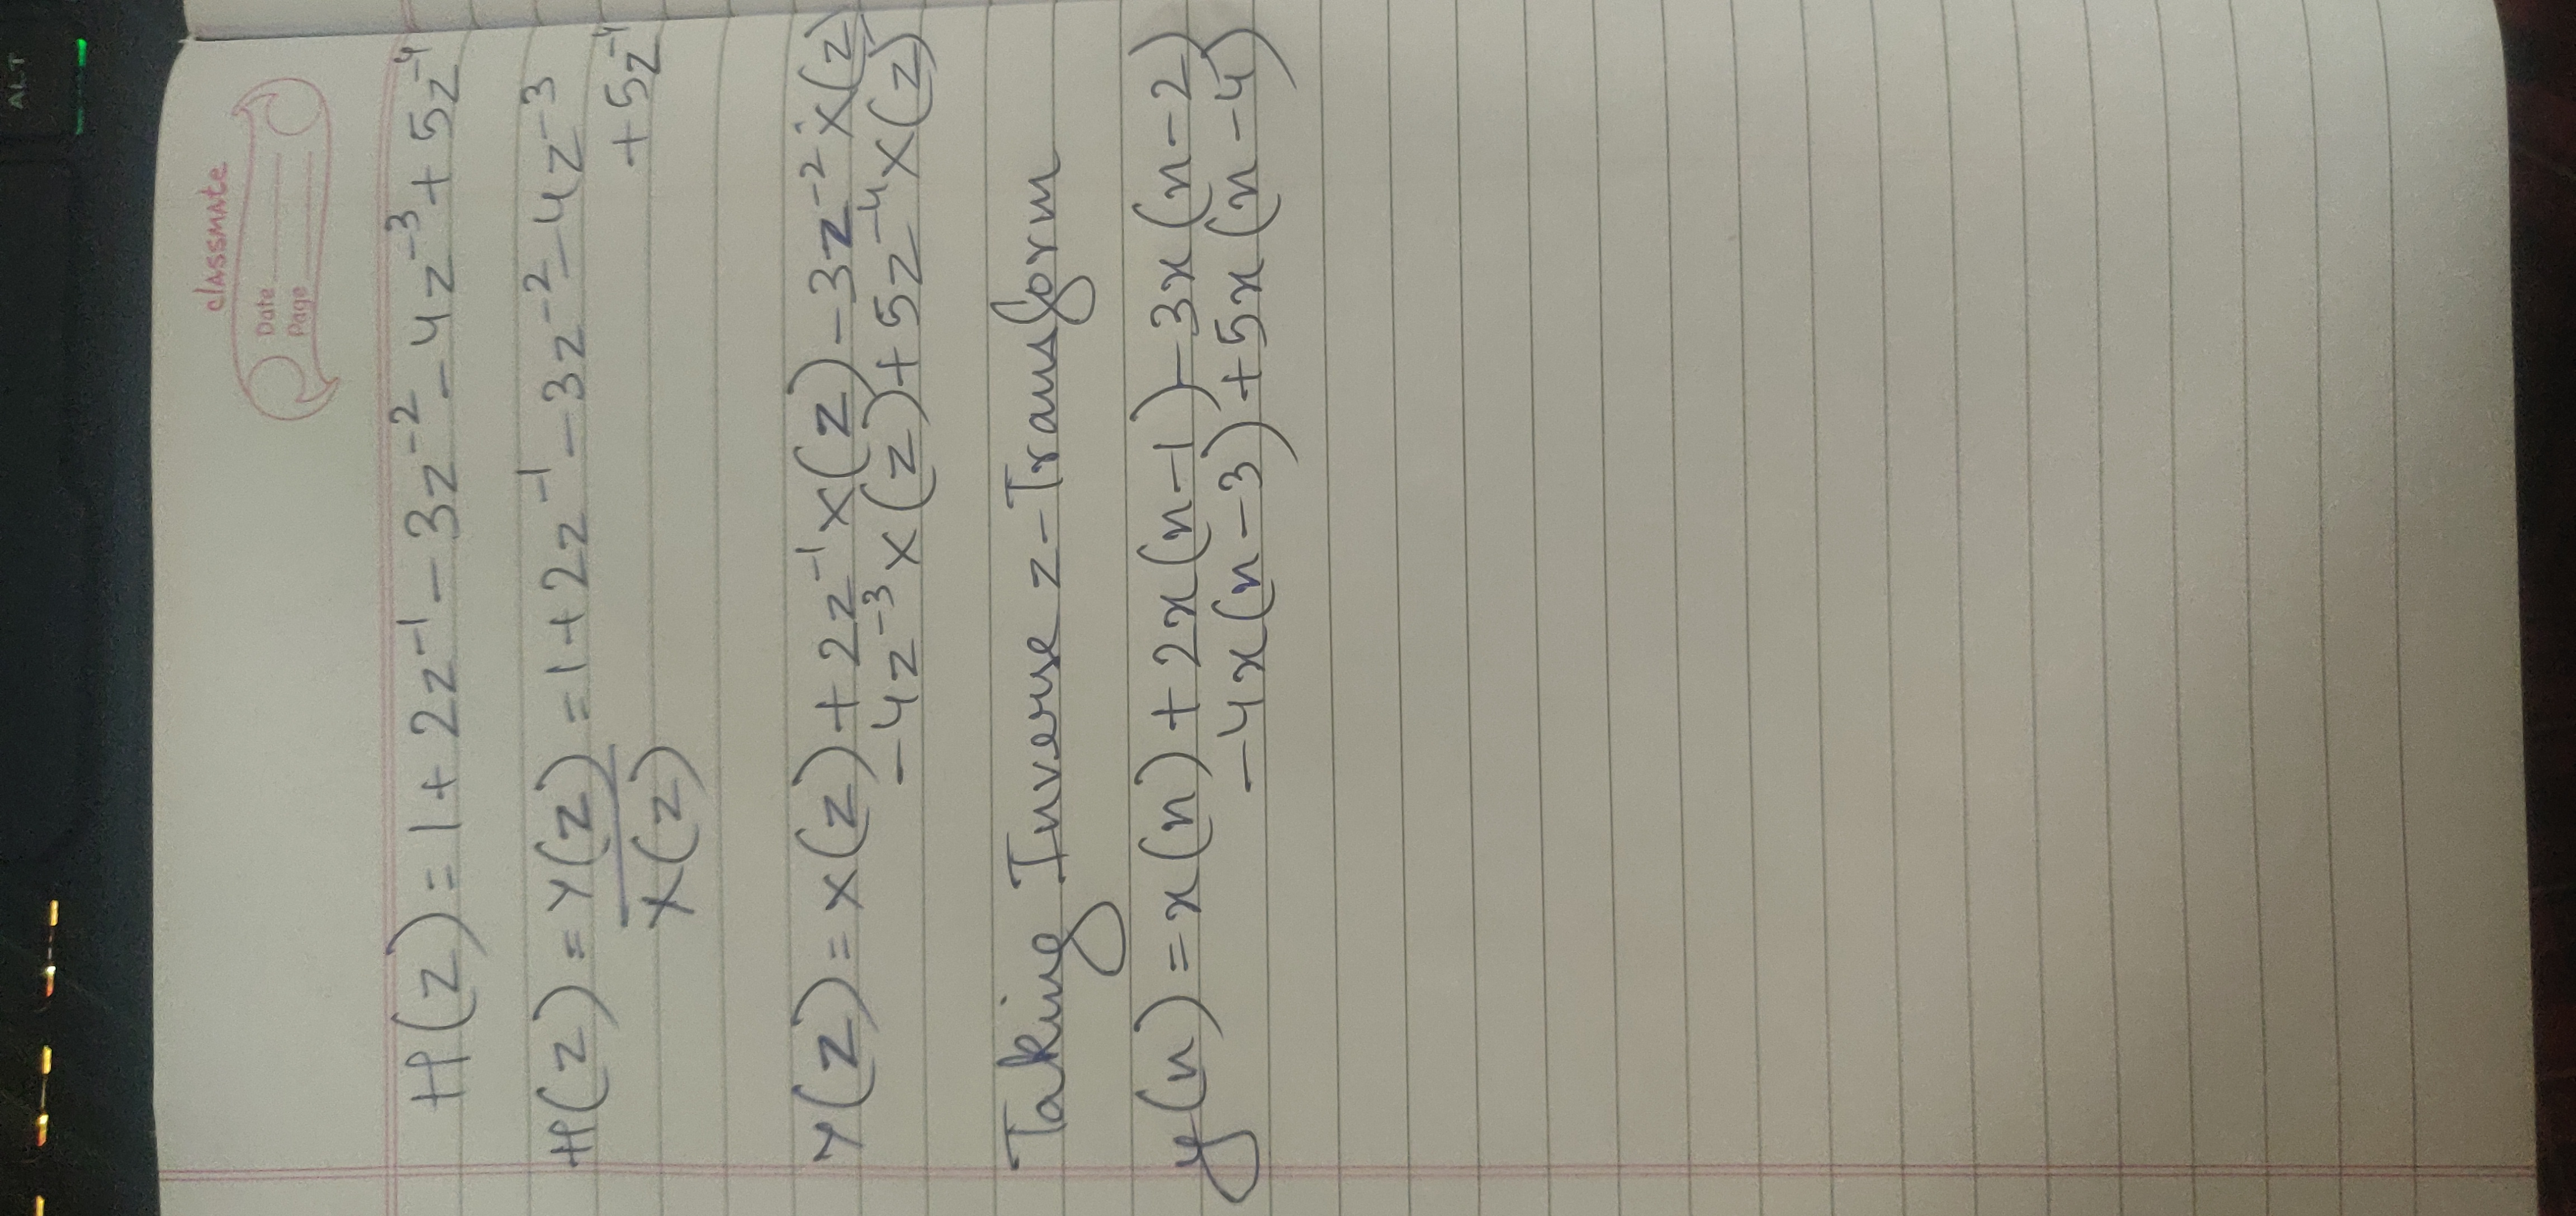 ALT
classmate
Date
Page
H(z) = 1 + 2z⁻¹ - 3z⁻² - 4z⁻³ + 5z⁻⁴
H(z) = Y(z)/X(z) = 1 + 2z⁻¹ - 3z⁻² - 4z⁻³
+ 5z⁻⁴
Y(z) = X(z) + 2z⁻¹X(z) - 3z⁻²X(z)
- 4z⁻³X(z) + 5z⁻⁴X(z)
Taking Inverse z-Transform
y(n) = x(n) + 2x(n-1) - 3x(n-2)
- 4x(n-3) + 5x(n-4)